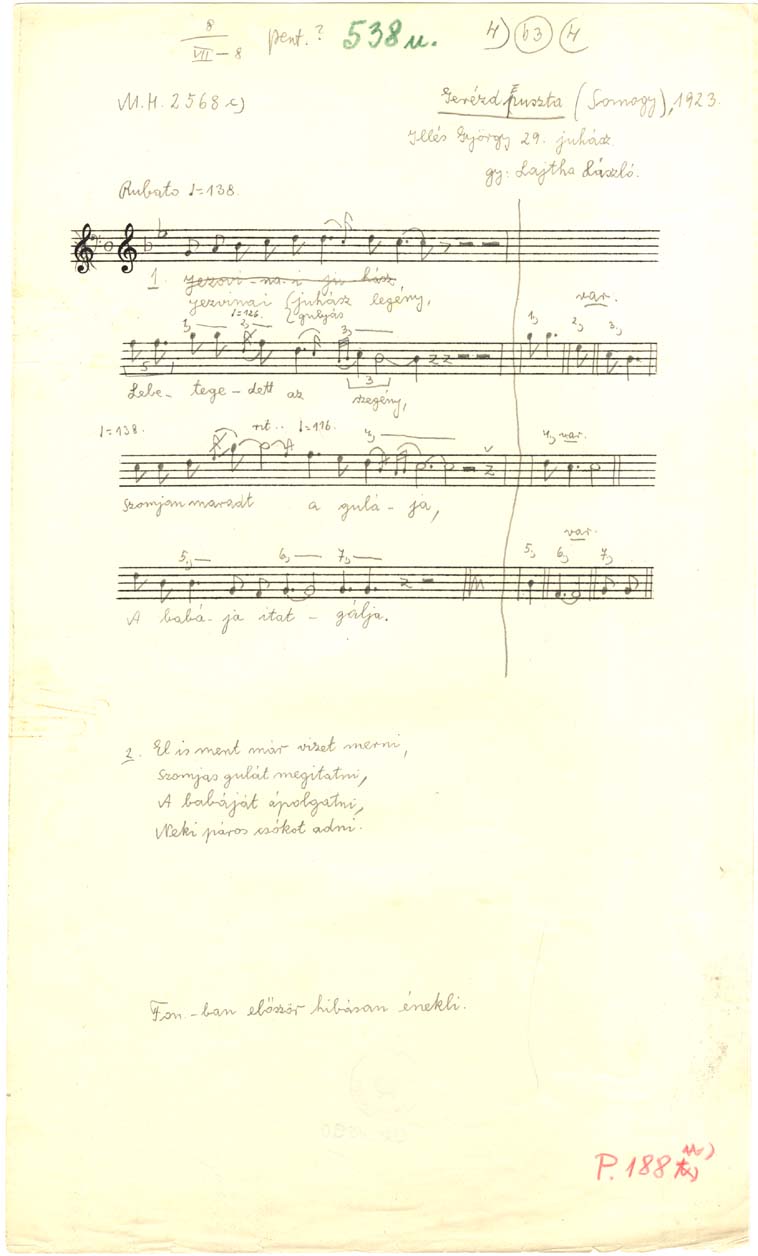 8
VII – 8
pent. ?
538 u.
4) (b3) (4
M.H. 2568 c)
Gerézdpuszta (Somogy), 1923.
Illés György 29. juhász
gy: Lajtha László.
Rubato ♩=138.
1. Jezovi-na-i ju hász
Jezvinai juhász legény,
gulyás
var.
♩=126.
1, 2, 3,
1, 2, 3,
5
3
Lebe- tege- dett az szegény,
♩=138. rit.. ♩=116.
4,
4, var.
Szomjan maradt a gulá- ja,
var.
5, 6, 7,
5, 6, 7,
A babá- ja itat - gálja.
2. El is ment már vizet merni,
Szomjas gulát megitatni,
A babáját ápolgatni,
Neki páros csókot adni.
Fon.-ban először hibásan énekli.
P. 188